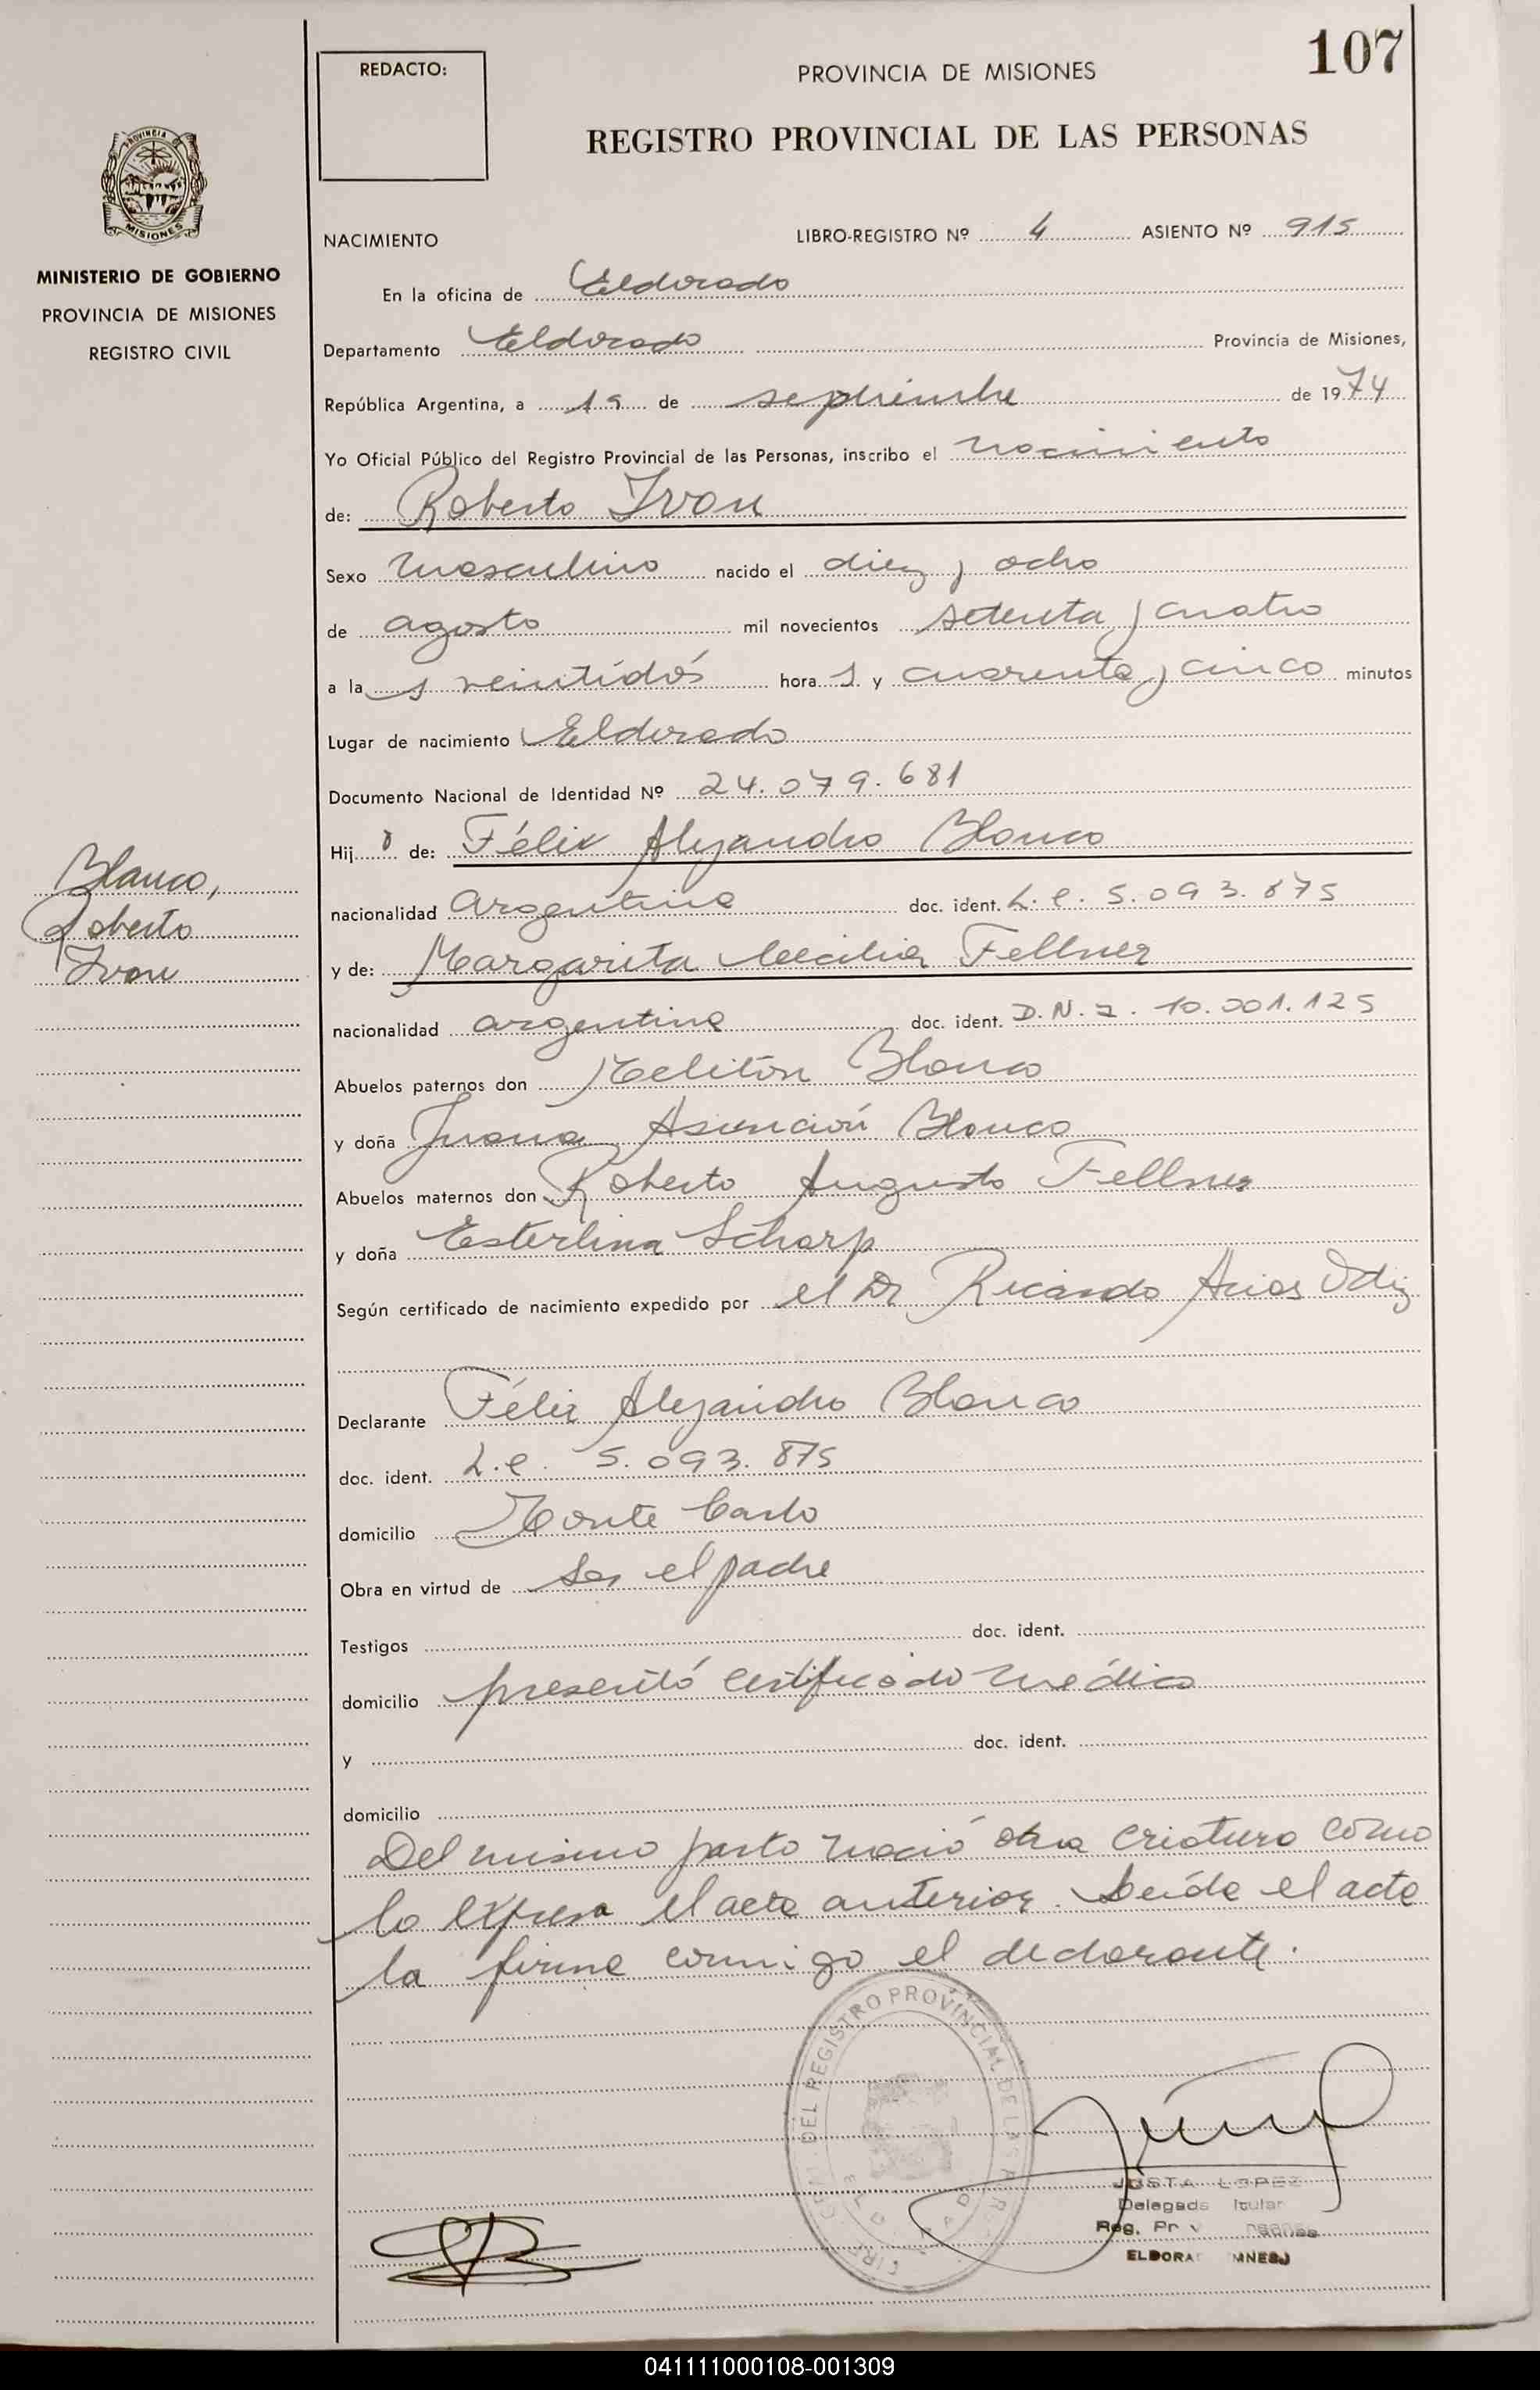 107
REDACTO:
PROVINCIA DE MISIONES
REGISTRO PROVINCIAL DE LAS PERSONAS
PROVINCIA
MISIONES
MINISTERIO DE GOBIERNO
PROVINCIA DE MISIONES
REGISTRO CIVIL
NACIMIENTO LIBRO-REGISTRO Nº 4 ASIENTO Nº 915
En la oficina de Eldorado
Departamento Eldorado Provincia de Misiones,
República Argentina, a de septiembre de 1974
Yo Oficial Público del Registro Provincial de las Personas, inscribo el nacimiento
de: Roberto Ivan
Sexo masculino nacido el diez y ocho
de agosto mil novecientos setenta y cuatro
a la s veintidós hora s y cuarenta y cinco minutos
Lugar de nacimiento Eldorado
Documento Nacional de Identidad Nº 24.079.681
Hij o de: Félix Alejandro Blanco
Blanco,
Roberto
Ivan
nacionalidad argentina doc. ident. L.e. 5.093.875
y de: Margarita Cecilia Fellner
nacionalidad argentina doc. ident. D.N.I. 10.001.125
Abuelos paternos don Melitón Blanco
y doña Juana Asunción Blanco
Abuelos maternos don Roberto Augusto Fellner
y doña Esterlina Scharp
Según certificado de nacimiento expedido por el Dr Ricardo Arias
Declarante Félix Alejandro Blanco
doc. ident. L.e. 5.093.875
domicilio Monte Carlo
Obra en virtud de ser el padre
Testigos doc. ident.
domicilio presentó certificado médico
y doc. ident.
domicilio
Del mismo parto nació otra criatura como
lo expresa el acta anterior. Leída el acta
la firma conmigo el declarante.
DEL REGISTRO PROVINCIAL DE LAS
JUSTA LOPEZ
Delegada
Reg.
041111000108-001309